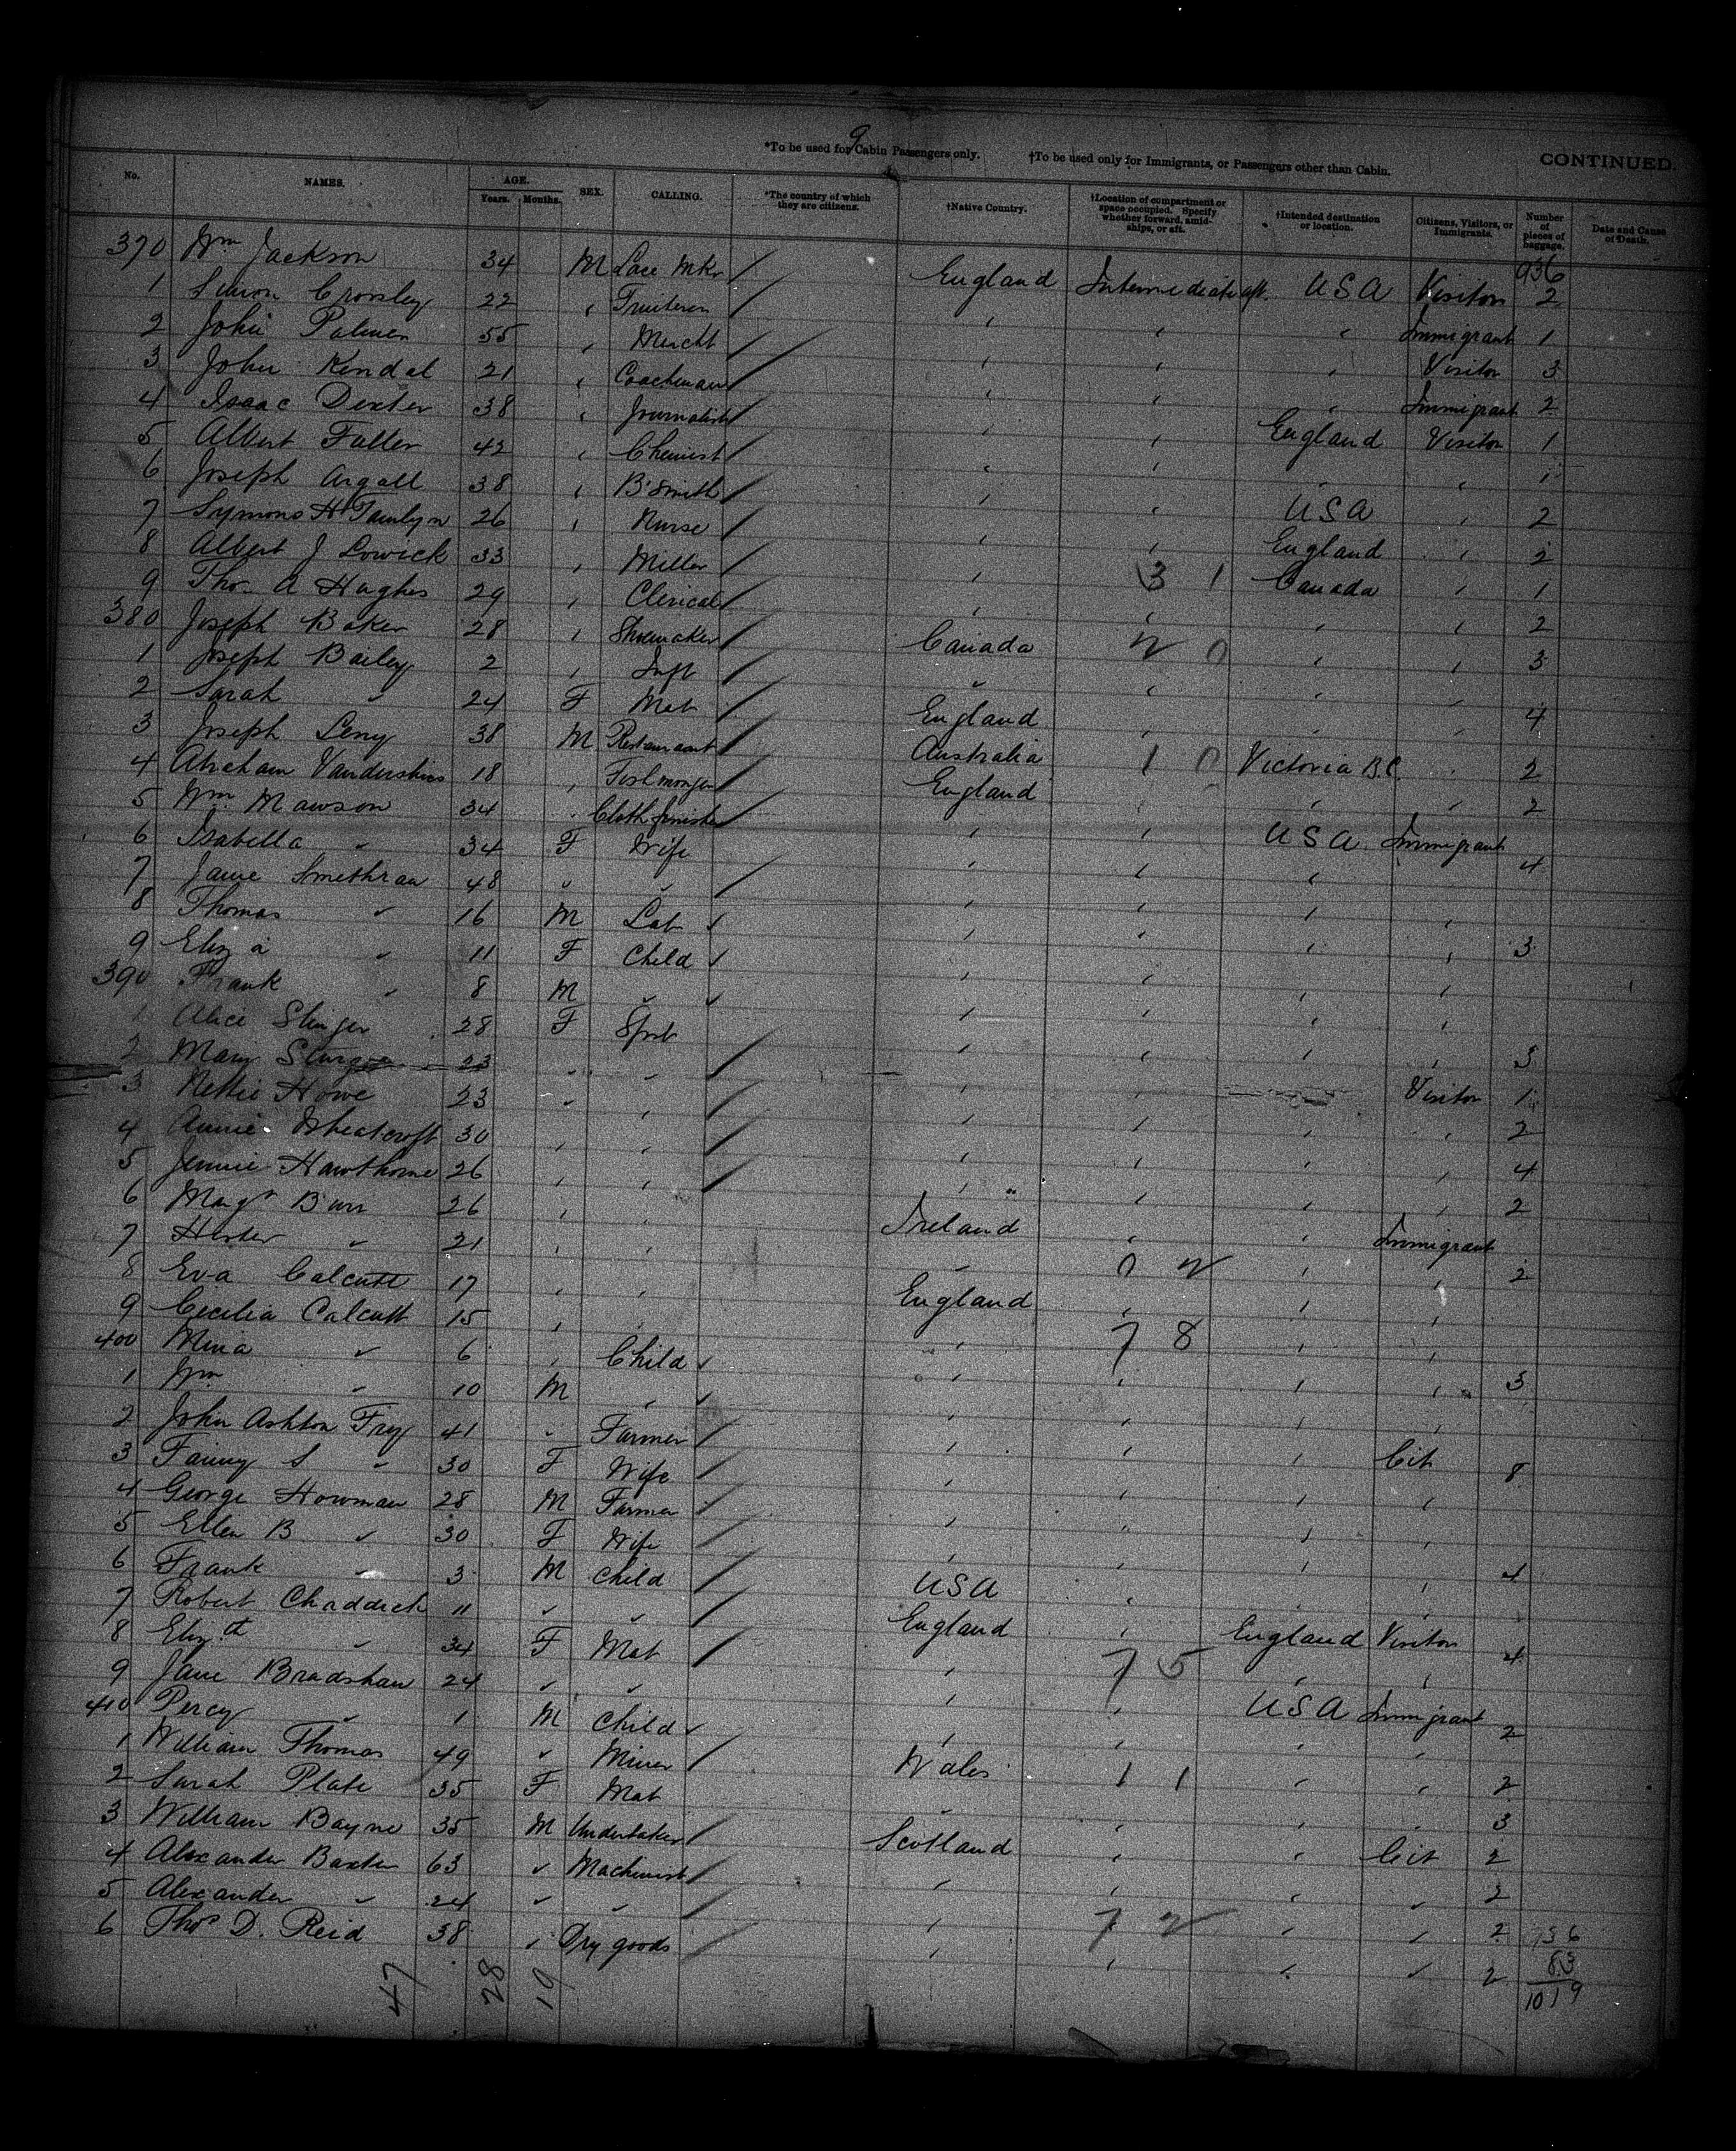 9
*To be used for Cabin Passengers only. †To be used only for Immigrants, or Passengers other than Cabin. CONTINUED.
No. NAMES. AGE. Years. Months. SEX. CALLING. *The country of which they are citizens. †Native Country. †Location of compartment or space occupied. Specify whether forward, amidships, or aft. †Intended destination or location. Citizens, Visitors, or Immigrants. Number of pieces of baggage. Date and Cause of Death.
936
370 Wm Jackson 34 M Lace Mkr England Intermediate aft. USA Visitor 2
1 Simon Crossley 22 " Fruiterer " " " Immigrant 1
2 John Palmer 55 " Mercht " " " Visitor 3
3 John Kendal 21 " Coachman " " " Immigrant 2
4 Isaac Dexter 38 " Journalist " " England Visitor 1
5 Albert Fuller 42 " Chemist " " " " 1
6 Joseph Argall 38 " B'Smith " " USA " 2
7 Symons H Tamlyn 26 " Nurse " " England " 2
8 Albert J Lowick 33 " Miller " " Canada " 1
31
9 Thos A Hughes 29 " Clerical " " " " 2
380 Joseph Baker 28 " Shoemaker Canada " " " 3
20
1 Joseph Bailey 2 " Inft " " " "
2 Sarah " 24 F Mat England " " " 4
3 Joseph Leny 38 M Restaurant Australia " Victoria B.C. " 2
10
4 Abraham Vanderskins 18 " Fishmonger England " " " 2
5 Wm Mawson 34 " Cloth finisher " " USA Immigrant
6 Isabella " 34 F Wife " " " 4
7 Jane Smethran 48 " " " " " "
8 Thomas " 16 M Lab " " " " 3
9 Eliza " 11 F Child " " " "
390 Frank " 8 M " " " " "
1 Alice Slinger 28 F Spst " " " " 3
2 Mary Sturge 23 " " " " Visitor 1
3 Nettie Howe 23 " " " " " " 2
4 Annie Wheatcroft 30 " " " " " " 4
5 Jennie Hawthorne 26 " " " " " " 2
6 Magt Burr 26 " " Ireland " " Immigrant
7 Hester " 21 " " " " " " 2
02
8 Eva Calcutt 17 " " England " " "
9 Cecilia Calcutt 15 " " " " " "
78
400 Mina " 6 " Child " " " " 3
1 Wm " 10 M " " " " "
2 John Ashton Frey 41 " Farmer " " " Cit 8
3 Fanny S " 30 F Wife " " " "
4 George Howman 28 M Farmer " " " "
5 Ellen B " 30 F Wife " " " " 4
6 Frank " 3 M Child USA " " "
7 Robert Chaddick 11 " " England " England Visitor 4
8 Elizth " 34 F Mat " " " "
75
9 Jane Bradshaw 24 " " " " USA Immigrant 2
410 Percy " 1 M Child " " " "
1 William Thomas 49 " Miner Wales " " " 2
11
2 Sarah Plate 35 F Mat " " " " 3
3 William Bayne 35 M Undertaker Scotland " " Cit 2
4 Alexander Baxter 63 " Machinist " " " " 2
5 Alexander " 24 " " " " " " 2
72
6 Thos D. Reid 38 " Dry goods " " " " 2
936
83
1019
47 28 19